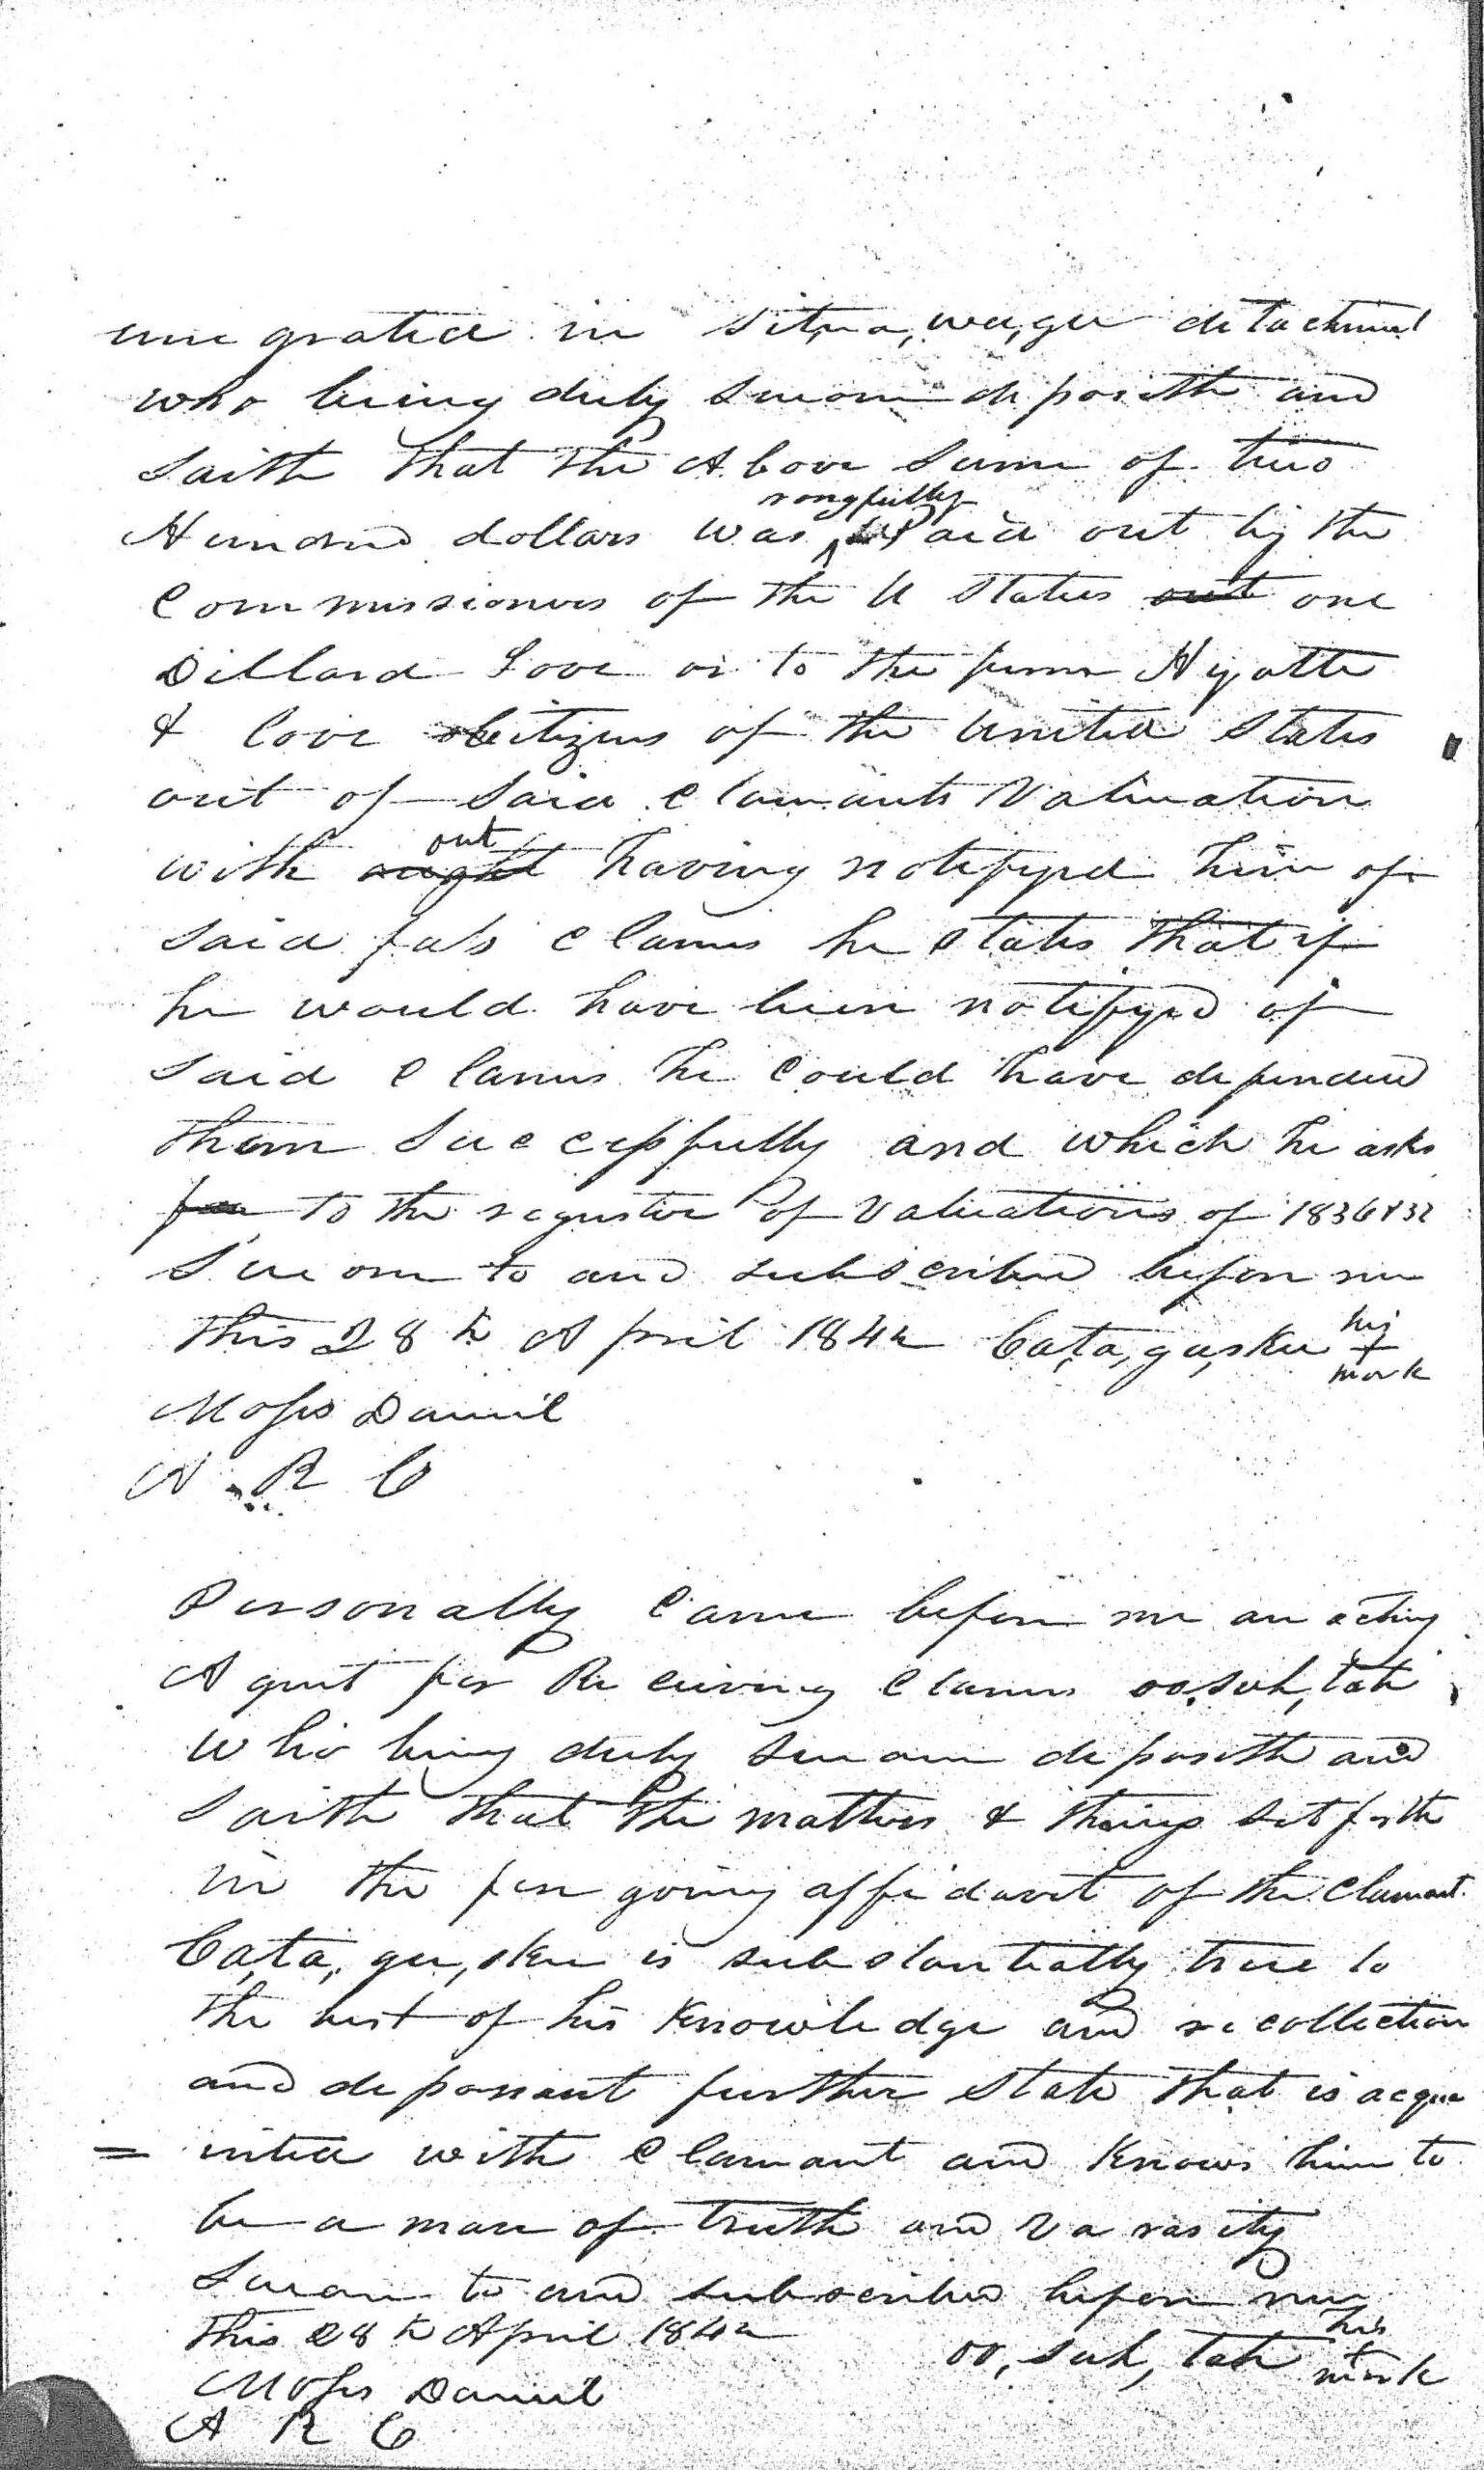 emigrated in Sit,u,a,wa,ger detachment
who being duly sworn deposith and
saith that the Above Sum of two
rongfully
Hundred dollars was ^ Paid out by the
Commissioners of the U States out one
Dillard Love or to the firm Hyatte
& Love Citizens of the United States
out of Said Clamants Valuation
out
with ought having notifyed him of
said fals Clams he states that if
he would have been notifyed of
said Clams he Could have defended
them Successfully and which he asks
for to the register of Valuations of 1836 & 37
Sworn to and subscribed before me
his
this 28th April 1842 Ca,ta,gus,kee +
mark
Moses Daniel
A R C
Personally Came before me an acting
Agent for Receiving Clams oo,suh,tah
who being duly sworn deposith and
saith that the matters & things set forth
in the fore going affidavit of the Clamant
Ca,ta,gu,skee is substantially true to
the best of his Knowledge and recollection
and deponant further state that is acqua
= inted with Clamant and Knows him to
be a man of truth and varasity
Sworn to and subscribed before me
this 28th April 1842
his
oo, suh, tah +
mark
Moses Daniel
A R C